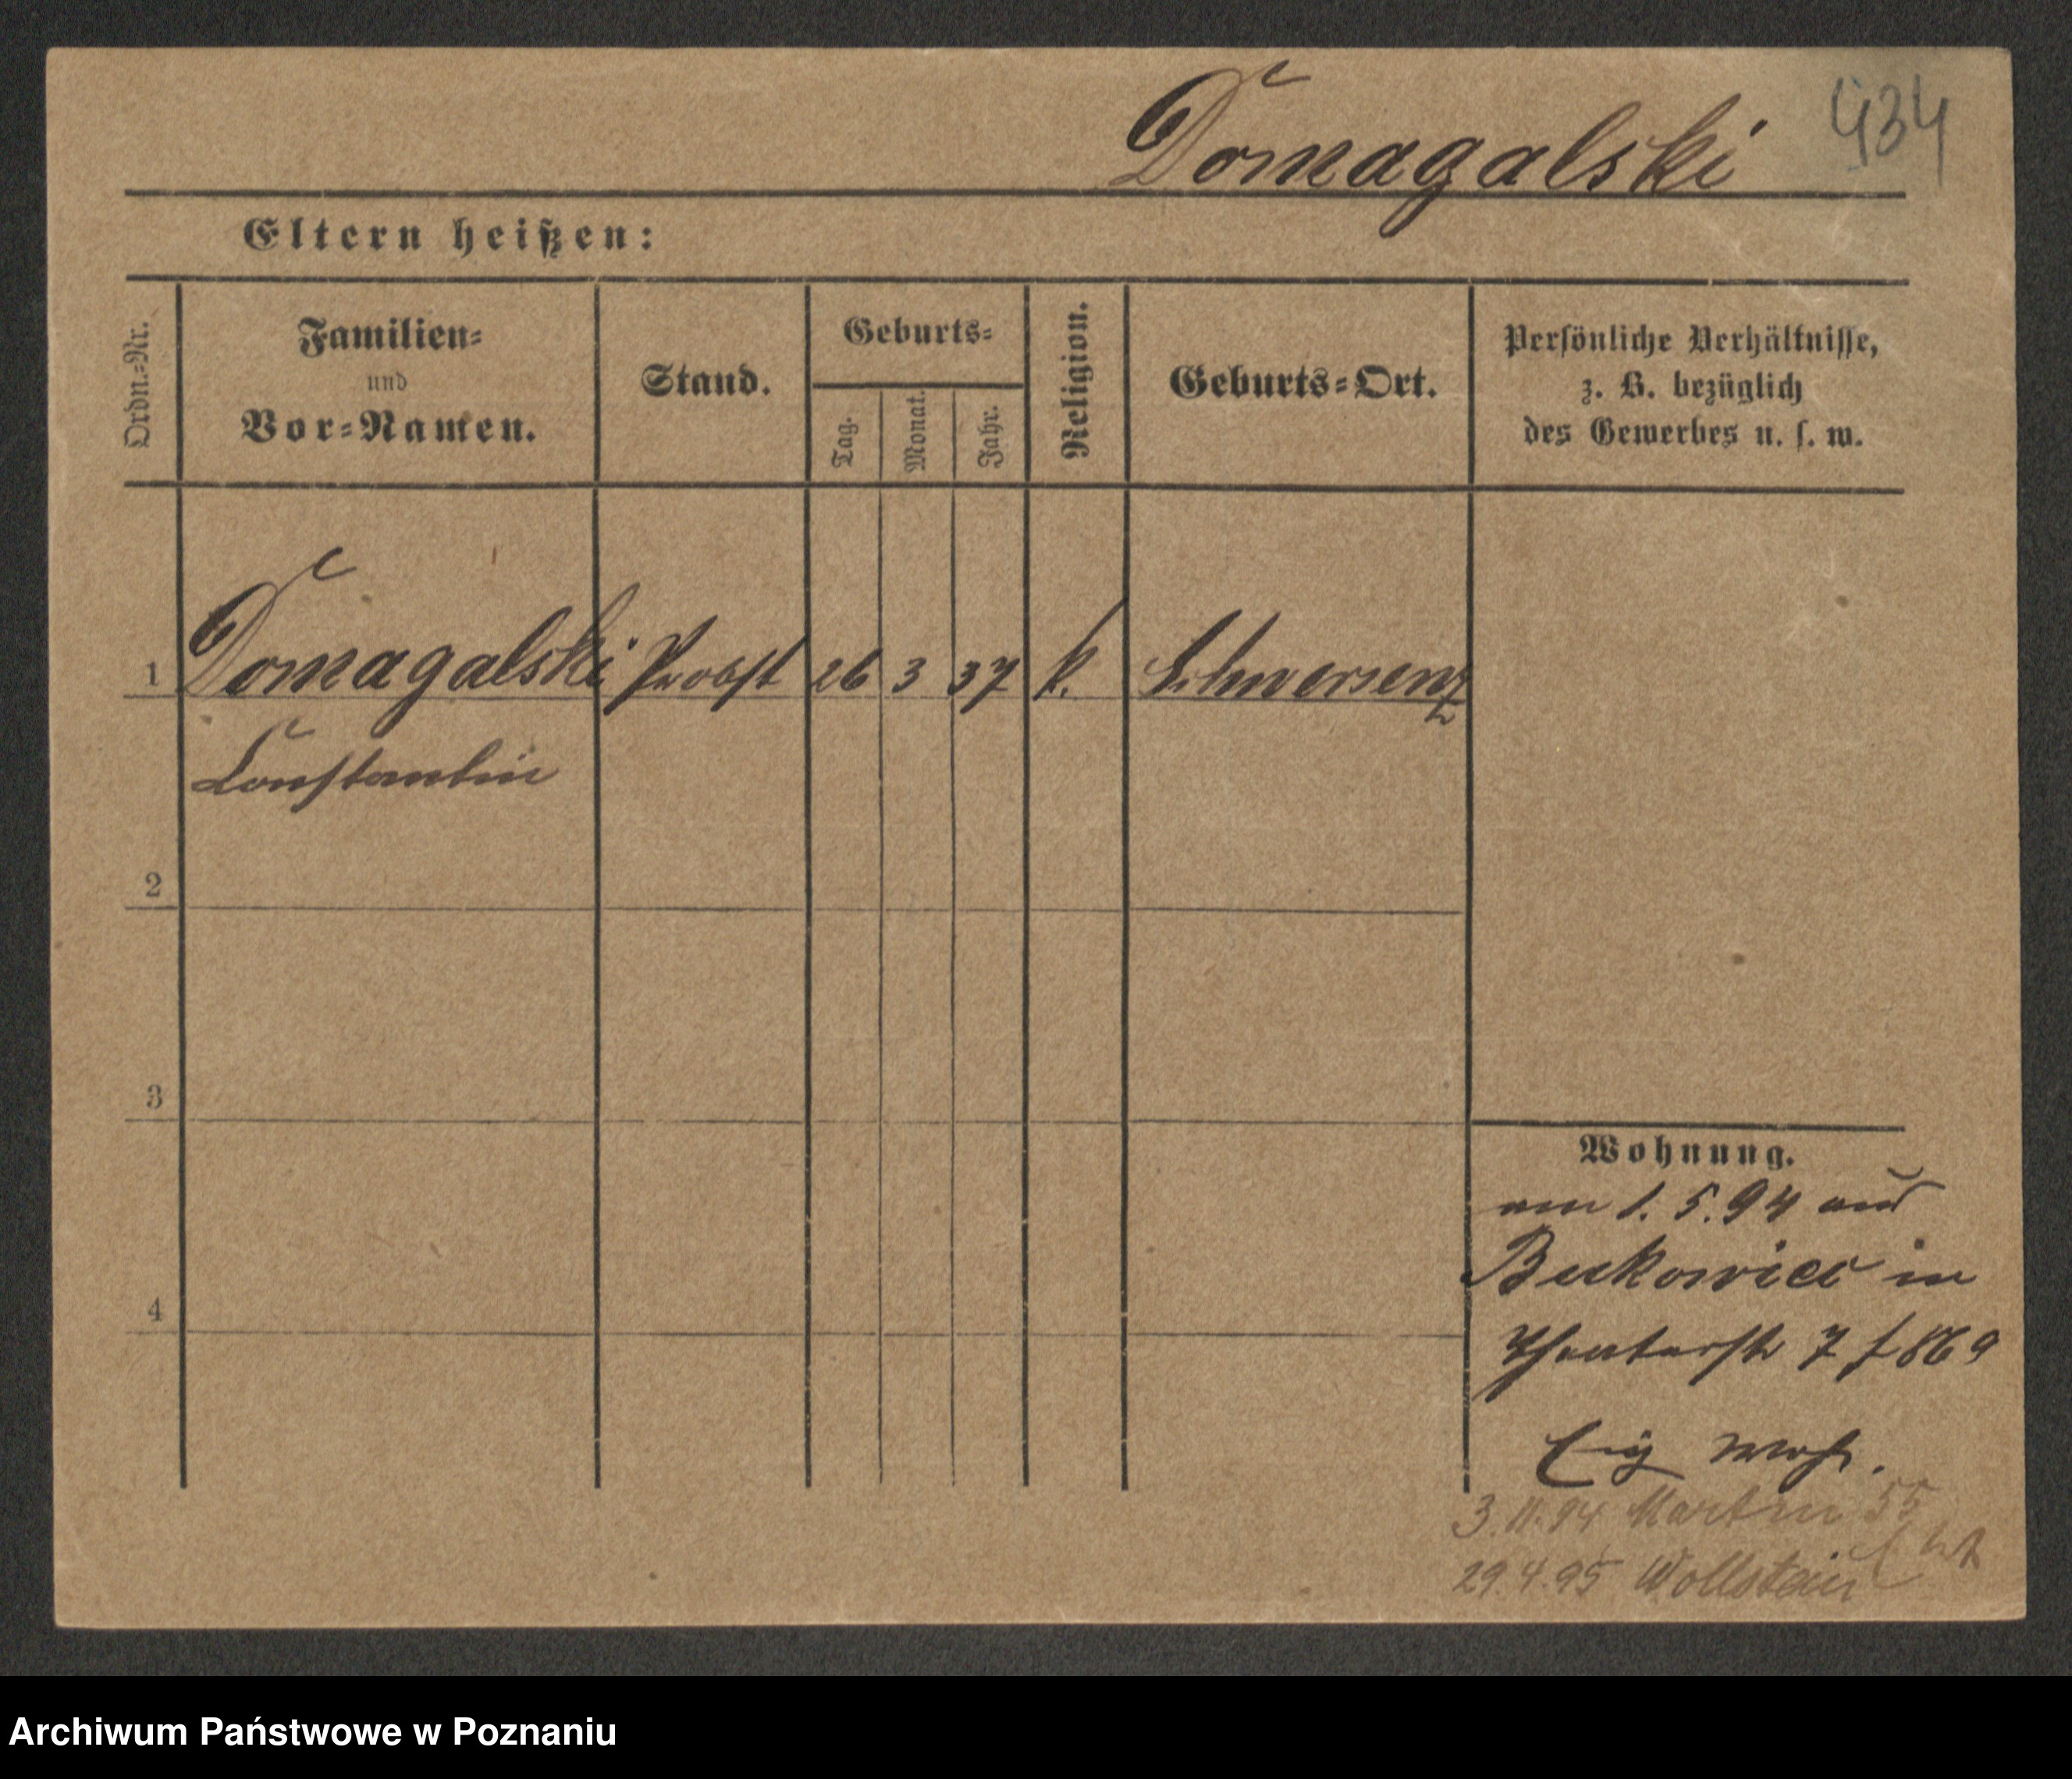 Domagalski
434
Eltern heißen:
Ordn.=Nr.
Familien=
und
Vor=Namen.
Stand.
Geburts=
Tag.
Monat.
Jahr.
Religion.
Geburts=Ort.
Persönliche Verhältnisse,
z. B. bezüglich
des Gewerbes u. s. w.
1 Domagalski Probst 26 3 37 k. Schwersenz
Constantin
2
3
4
Wohnung.
am 1. 5. 94 aus
Bukowiec in
Theaterstr 7
Eig Woh.
3.11.94 Martin 55
29.4.95 Wollstein
Archiwum Państwowe w Poznaniu